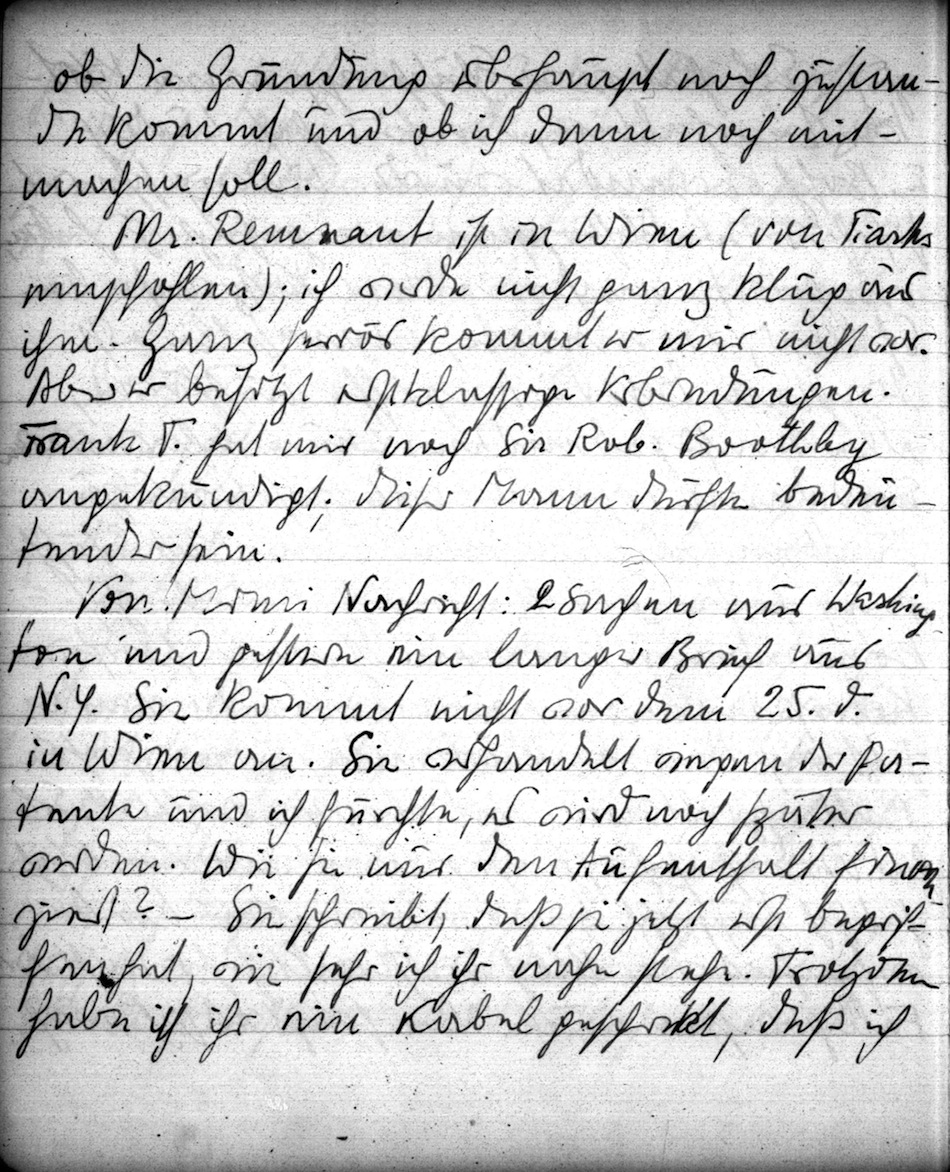 ob die Gründung überhaupt noch zustan-
de kommt und ob ich dann noch mit-
machen soll.
Mr. Remnant ist in Wien (von Tiarks
empfohlen); ich werde nicht ganz klug aus
ihm. Ganz seriös kommt er mir nicht vor.
Aber er besitzt erstklassige Verbindungen.
Frank T. hat mir noch Sir Rob. Boothby
angekündigt; dieser Mann dürfte bedeu-
tender sein.
Von Mimi Nachricht: 2 Sachen aus Washing-
ton und gestern ein langer Brief aus
N.Y. Sie kommt nicht vor dem 25. d.
in Wien an. Sie verhandelt wegen der Pa-
tente und ich fürchte, es wird noch später
werden. Wie sie nur den Aufenthalt finan-
ziert? – Sie schreibt, daß sie jetzt erst begrif-
fen hat, wie sehr ich ihr nahe stehe. Trotzdem
habe ich ihr ein Kabel geschickt, daß ich